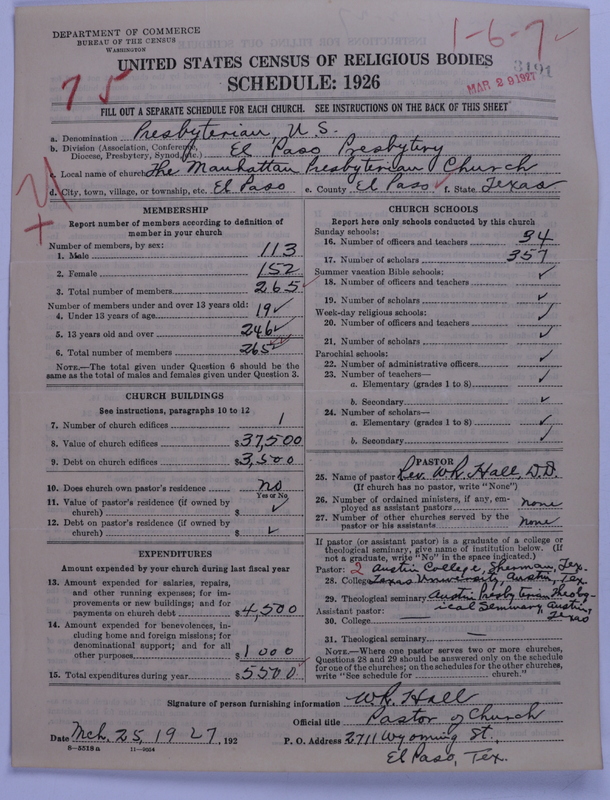 DEPARTMENT OF COMMERCE
BUREAU OF THE CENSUS
WASHINGTON
1-6-7
3191
MAR 29 1927
UNITED STATES CENSUS OF RELIGIOUS BODIES
SCHEDULE: 1926
75
FILL OUT A SEPARATE SCHEDULE FOR EACH CHURCH. SEE INSTRUCTIONS ON THE BACK OF THIS SHEET
a. Denomination Presbyterian, U.S.
b. Division (Association, Conference, Diocese, Presbytery, Synod, etc.) El Paso Presbytery
c. Local name of church The Manhattan Presbyterian Church
d. City, town, village, or township, etc. El Paso e. County El Paso f. State Texas
MEMBERSHIP
Report number of members according to definition of
member in your church
Number of members, by sex:
1. Male 113
2. Female 152
3. Total number of members 265
Number of members under and over 13 years old:
4. Under 13 years of age 19
5. 13 years old and over 246
6. Total number of members 265
NOTE.—The total given under Question 6 should be
same as the total of males and females given under Question 3.
CHURCH BUILDINGS
See instructions, paragraphs 10 to 12
7. Number of church edifices 1
8. Value of church edifices $37,500
9. Debt on church edifices $3,500
10. Does church own pastor's residence no
Yes or No
11. Value of pastor's residence (if owned by
church) $ ✓
12. Debt on pastor's residence (if owned by
church) $ ✓
EXPENDITURES
Amount expended by your church during last fiscal year
13. Amount expended for salaries, repairs,
and other running expenses; for im-
provements or new buildings; and for
payments on church debt $4,500
14. Amount expended for benevolences, in-
cluding home and foreign missions; for
denominational support; and for all
other purposes $1000
15. Total expenditures during year $5500
CHURCH SCHOOLS
Report here only schools conducted by this church
Sunday schools:
16. Number of officers and teachers 34
17. Number of scholars 357
Summer vacation Bible schools:
18. Number of officers and teachers ✓
19. Number of scholars ✓
Week-day religious schools:
20. Number of officers and teachers ✓
21. Number of scholars ✓
Parochial schools:
22. Number of administrative officers ✓
23. Number of teachers—
a. Elementary (grades 1 to 8) ✓
b. Secondary ✓
24. Number of scholars—
a. Elementary (grades 1 to 8) ✓
b. Secondary ✓
PASTOR
25. Name of pastor Rev. W.R. Hall, D.D.
(If church has no pastor, write "None")
26. Number of ordained ministers, if any, em-
ployed as assistant pastors none
27. Number of other churches served by the
pastor or his assistants none
If pastor (or assistant pastor) is a graduate of a college or
theological seminary, give name of institution below. (If
not a graduate, write "No" in the space indicated.)
Pastor: 2 Austin College, Sherman, Tex.
28. College Texas University, Austin, Tex
29. Theological seminary Austin Presbyterian Theolog-
ical Seminary, Austin,
Texas
Assistant pastor:
30. College —
31. Theological seminary —
NOTE.—Where one pastor serves two or more churches,
Questions 28 and 29 should be answered only on the schedule
for one of the churches; on the schedules for the other churches,
write "See schedule for ........ church."
Signature of person furnishing information W.R. Hall
Official title Pastor of Church
Date Mch. 25, 1927, 192 P. O. Address 2711 Wyoming St.,
El Paso, Tex.
8—5518 a 11—9054